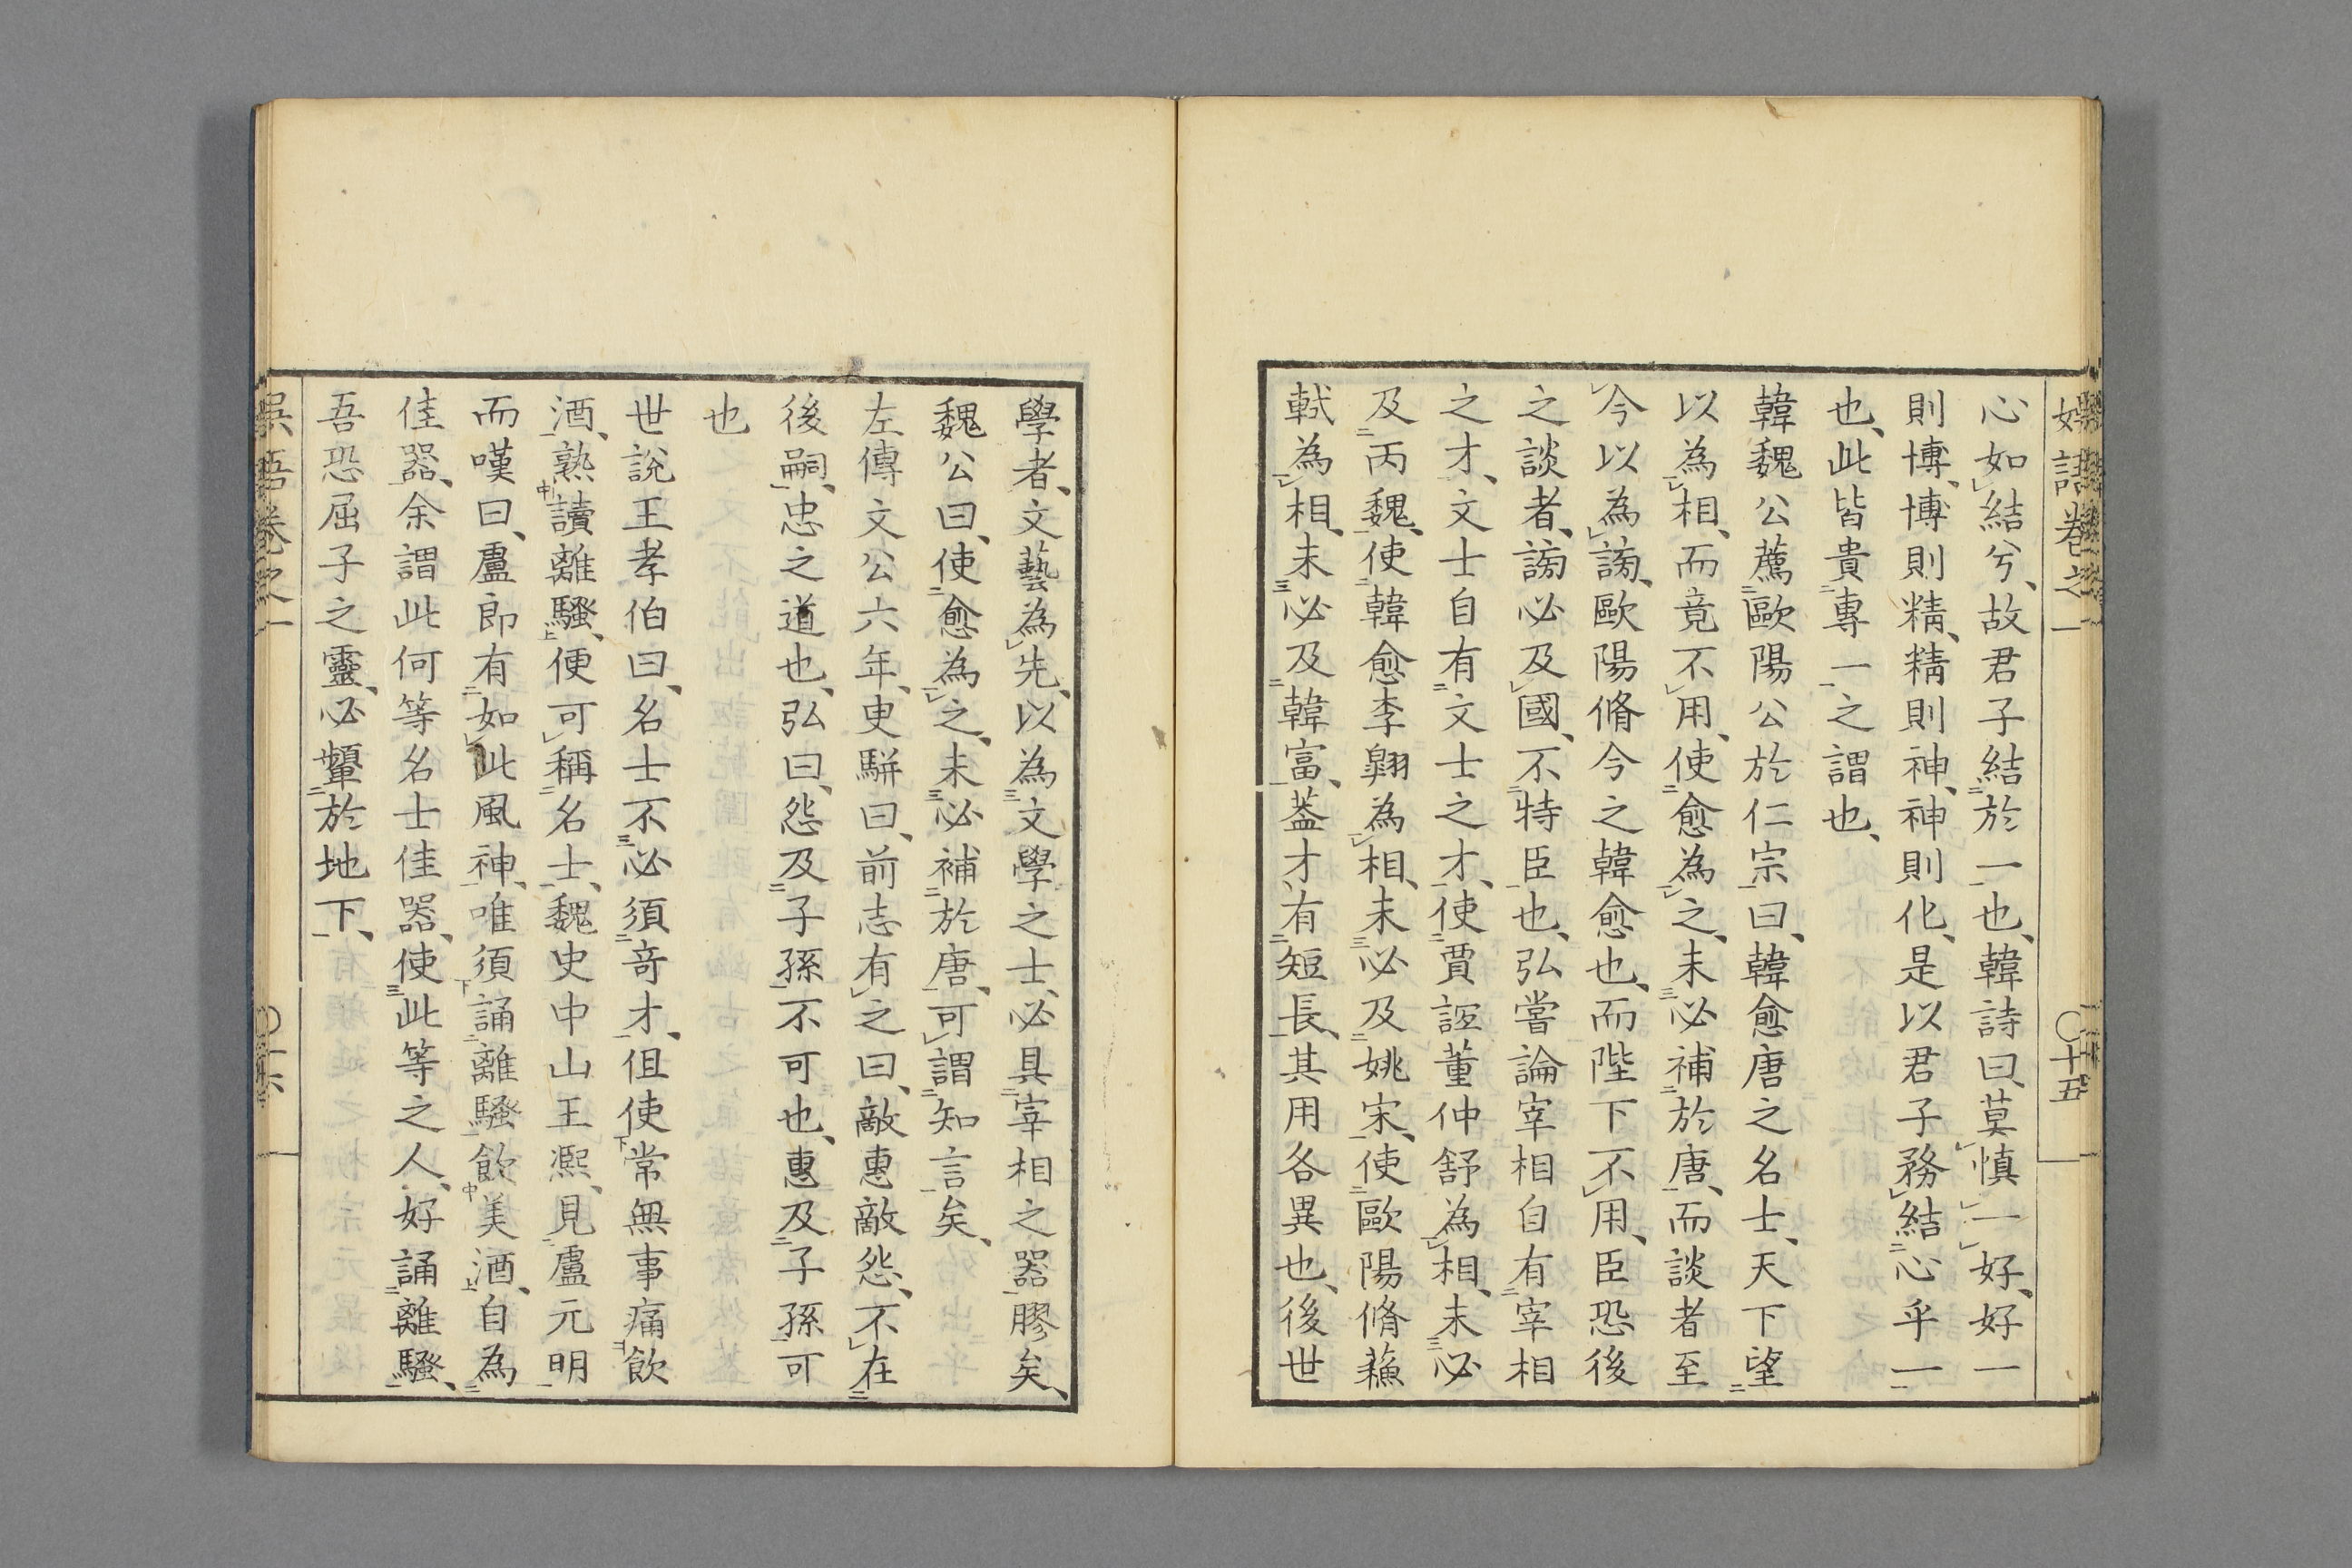 心如結兮、故君子結於一也、韓詩曰、莫慎一好、好一
則博、博則精、精則神、神則化、是以君子務結心乎一
也、此皆貴專一之謂也、
韓魏公薦歐陽公於仁宗曰、韓愈唐之名士、天下望
以為相、而竟不用、使愈為之、未必補於唐、而談者至
今以為謗、歐陽脩今之韓愈也、而陛下不用、臣恐後
之談者、謗必及國、不特臣也、弘嘗論宰相自有宰相
之才、文士自有文士之才、使賈誼董仲舒為相、未必
及丙魏、使韓愈李翺為相、未必及姚宋、使歐陽脩蘓
軾為相、未必及韓富、葢才有短長、其用各異也、後世
學者、文藝為先、以為文學之士、必具宰相之器膠矣、
魏公曰、使愈為之、未必補於唐、可謂知言矣、
左傳文公六年、㬰駢曰、前志有之曰、敵惠敵怨、不在
後嗣、忠之道也、弘曰、怨及子孫不可也、惠及子孫可
也
世說王孝伯曰、名士不必須竒才、但使常無事痛飲
酒、熟讀離騷、便可稱名士、魏史中山王凞、見盧元明
而嘆曰、盧郎有如此風神、唯須誦離騷飲美酒、自為
佳器、余謂此何等名士佳器、使此等之人、好誦離騷、
吾恐屈子之靈、必顰於地下、
卷之一
〇十五